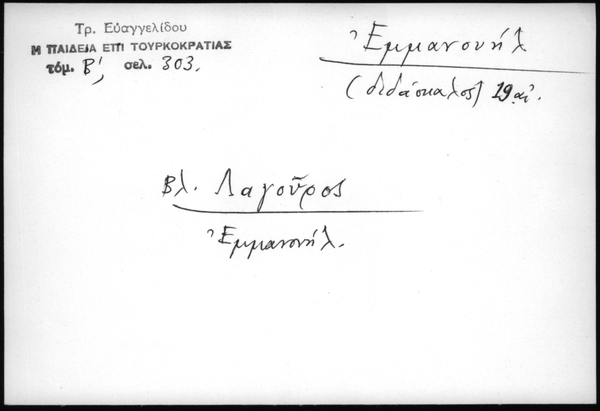 Τρ. Εὐαγγελίδου
Η ΠΑΙΔΕΙΑ ΕΠΙ ΤΟΥΡΚΟΚΡΑΤΙΑΣ
τόμ. Β', σελ. 303.
Ἐμμανουήλ
(διδάσκαλος) 19 αἰ.
Βλ. Λαγοῦρος
Ἐμμανουήλ.